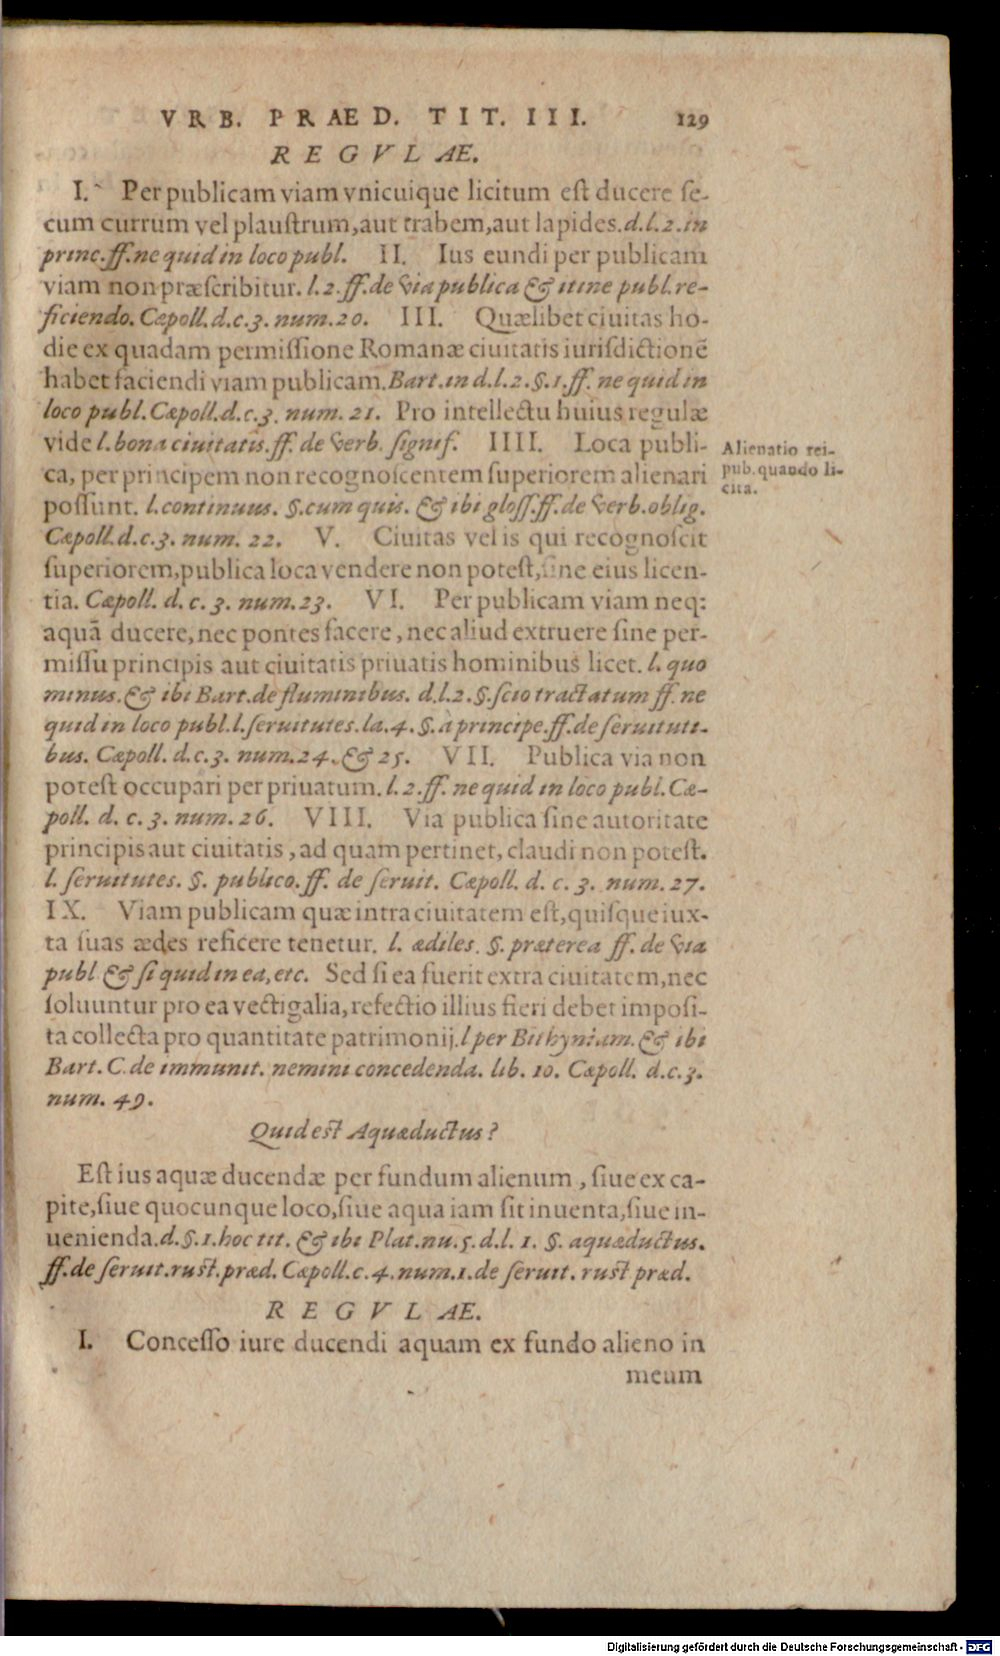 VRB. PRAED. TIT. III. 129
REGVLAE.
I. Per publicam viam vnicuique licitum est ducere se-
cum currum vel plaustrum,aut trabem,aut lapides.d.l.2.in
princ.ff.ne quid in loco publ. II. Ius eundi per publicam
viam non præscribitur.l.2.ff.de via publica & itine publ.re-
ficiendo. Cæpoll.d.c.3. num.20. III. Quælibet ciuitas ho-
die ex quadam permissione Romanæ ciuitatis iurisdictionē
habet faciendi viam publicam.Bart.in d.l.2.§.1.ff. ne quid in
loco publ.Cæpoll.d.c.3. num. 21. Pro intellectu huius regulæ
vide l.bona ciuitatis.ff. de verb. signif. IIII. Loca publi-
ca, per principem non recognoscentem superiorem alienari
possunt. l.continuus. §.cum quis. & ibi gloss.ff.de verb.oblig.
Cæpoll.d.c.3. num. 22. V. Ciuitas vel is qui recognoscit
superiorem,publica loca vendere non potest,sine eius licen-
tia. Cæpoll. d. c. 3. num.23. VI. Per publicam viam neq:
aquā ducere,nec pontes facere,nec aliud extruere sine per-
missu principis aut ciuitatis priuatis hominibus licet. l. quo
minus.& ibi Bart.de fluminibus. d.l.2.§.scio tractatum ff. ne
quid in loco publ.l.seruitutes.la.4.§.à principe.ff.de seruituti-
bus. Cæpoll. d.c.3. num.24.& 25. VII. Publica via non
potest occupari per priuatum.l.2.ff. ne quid in loco publ.Cæ-
poll. d. c. 3. num. 26. VIII. Via publica sine autoritate
principis aut ciuitatis,ad quam pertinet,claudi non potest.
l. seruitutes. §. publico.ff. de seruit. Cæpoll. d. c. 3. num. 27.
IX. Viam publicam quæ intra ciuitatem est,quisque iux-
ta suas ædes reficere tenetur. l. ædiles. §. præterea ff. de via
publ & si quid in ea,etc. Sed si ea fuerit extra ciuitatem,nec
soluuntur pro ea vectigalia,refectio illius fieri debet imposi-
ta collecta pro quantitate patrimonij.l per Bithyniam.& ibi
Bart. C.de immunit. nemini concedenda. lib. 10. Cæpoll. d.c.3.
num. 49.
Alienatio rei-
pub.quando li-
cita.
Quid est Aquæductus?
Est ius aquæ ducendæ per fundum alienum, siue ex ca-
pite,siue quocunque loco,siue aqua iam sit inuenta,siue in-
uenienda.d.§.1.hoc tit. & ibi Plat.nu.5.d.l. 1. §. aquæductus.
ff.de seruit.rust.præd. Cæpoll.c.4.num.1.de seruit. rust præd.
REGVLAE.
I. Concesso iure ducendi aquam ex fundo alieno in
meum
Digitalisierung gefördert durch die Deutsche Forschungsgemeinschaft - DFG